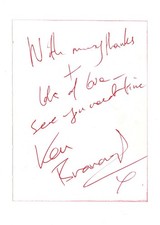 With many thanks
+
lots of love –
see you next time
Ken
x